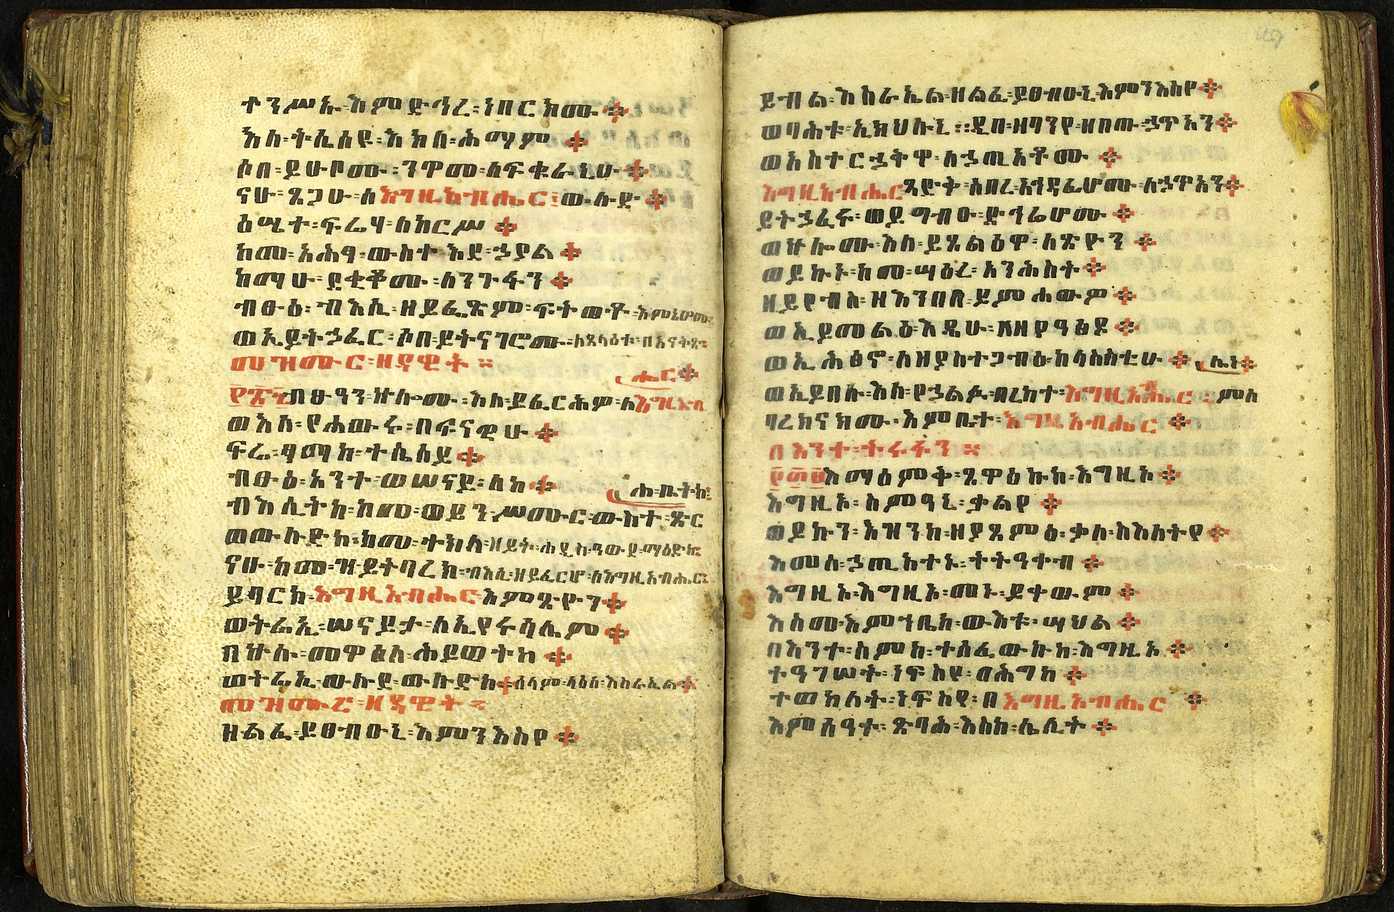 ተንሥኡ፡እምድኅረ፡ነበርክሙ
እለ፡ትሴሰዩ፡እክለ፡ሕማም
ሶበ፡ይሁቦሙ፡ንዋመ፡ለፍቁራኒሁ
ናሁ፡ጸጋሁ፡ለእግዚአብሔር፡ውሉድ
ዕሤተ፡ፍሬሃ፡ለከርሥ
ከመ፡አሕፃ፡ውስተ፡እደ፡ኃያል
ከማሁ፡ደቂቆሙ፡ለንጉፋን
ብፁዕ፡ብእሲ፡ዘይፌጽም፡ፍትወቶ፡እምኔሆሙ
ወኢይትኃፈር፡ሶበ፡ይትናገሮሙ፡ለጸላዕቱ፡በአናቅጽ
መዝሙር፡ዘዳዊት
ሔር
፻፳፯ብፁዓን፡ኵሎሙ፡እለ፡ይፈርሕዎ፡ለእግዚአብ
ወእለ፡የሐውሩ፡በፍናዊሁ
ፍሬ፡ፃማከ፡ተሴሰይ
ብፁዕ፡አንተ፡ወሠናይ፡ለከ
ሐ፡ቤትከ
ብእሲትከ፡ከመ፡ወይን፡ሥሙር፡ውስተ፡ጽር
ወውሉድከ፡ከመ፡ተክለ፡ዘይት፡ሐዲስ፡ዓውደ፡ማዕድከ
ናሁ፡ከመ፡ዝ፡ይትባረክ፡ብእሲ፡ዘይፈርሆ፡ለእግዚአብሔር
ይባርከ፡እግዚአብሔር፡እምጽዮን
ወትሬኢ፡ሠናይታ፡ለኢየሩሳሌም
በኵሉ፡መዋዕለ፡ሕይወትከ
ወትሬኢ፡ውሉደ፡ውሉድከ፡ሰላም፡ላዕለ፡እስራኤል
መዝሙር፡ዘዳዊት
ዘልፈ፡ይፀብዑኒ፡እምንእስየ
ይብል፡እስራኤል፡ዘልፈ፡ይፀብዑኒ፡እምንእስየ
ወባሕቱ፡ኢክህሉኒ፡ዲበ፡ዘባንየ፡ዘበጡ፡ኃጥአን
ወአስተርኃቅዋ፡ለኃጢአቶሙ
እግዚአብሔር፡ጻድቅ፡ሰበረ፡አንገዲሆሙ፡ለኃጥአን
ይትኃፈሩ፡ወይግብኡ፡ድኅሬሆሙ
ወኵሎሙ፡እለ፡ይጸልዕዋ፡ለጽዮን
ወይኩኑ፡ከመ፡ሣዕረ፡አንሕስት
ዘይየብስ፡ዘእንበለ፡ይምሐውዎ
ወኢይመልዕ፡እዴሁ፡ለዘየዓፅዶ
ወኢሕፅኖ፡ለዘያስተጋብዕ፡ከላስስቲሁ
ወኢይበሉ፡እለ፡የኃልፉ፡በረከተ፡እግዚአብሔር፡ምስ
ሌክ
ባረክናክሙ፡እምቤተ፡እግዚአብሔር
በእንተ፡ተሩፋን
፻፳፱እማዕምቅ፡ጸዋዕኩከ፡እግዚኦ
እግዚኦ፡ስምዓኒ፡ቃልየ
ወይኩን፡እዝንከ፡ዘያጸምዕ፡ቃለ፡ስእለትየ
እመሰ፡ኃጢአተኑ፡ትትዓቀብ
እግዚኦ፡እግዚኦ፡መኑ፡ይቀውም
እስመ፡እምኀቤከ፡ውእቱ፡ሣህል
በእንተ፡ስምከ፡ተሰፈውኩከ፡እግዚኦ
ተዓገሠት፡ነፍስየ፡በሕግከ
ተወከለት፡ነፍስየ፡በእግዚአብሔር
እምሰዓተ፡ጽባሕ፡እስከ፡ሌሊት